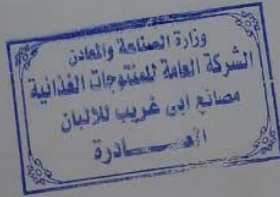 وزارة الصناعة والمعادن
الشركة العامة للمنتوجات الغذائية
مصانع ابي غريب للالبان
الصـــادرة